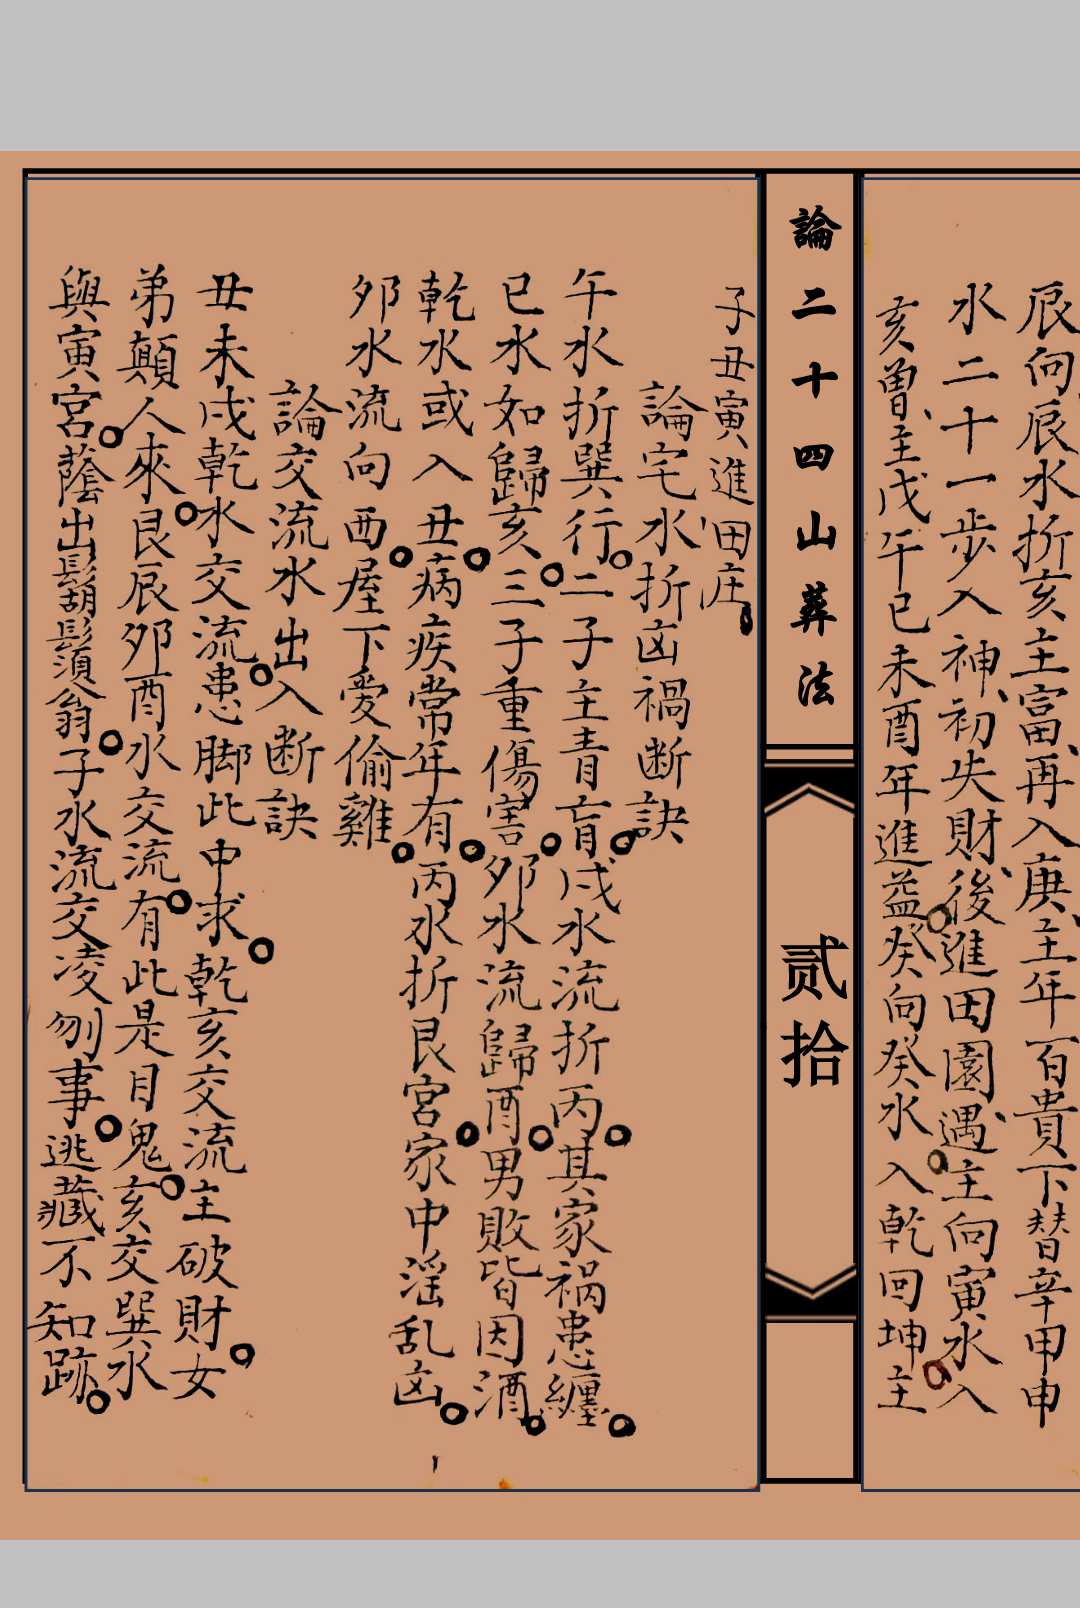 辰向辰水折亥主富再入庚主年百貴下替辛甲申
水二十一步入神初失財後進田園遇主向寅水入
亥曾主戊午巳未酉年進益癸向癸水入乾回坤主
論二十四山葬法
贰拾
子丑寅進田庄
論宅水折凶禍断訣
午水折巽行二子主青盲戌水流折丙其家祸患纏
巳水如歸亥三子重傷害夘水流歸酉男敗皆因酒
乾水或入丑病疾常年有丙水折艮宮家中淫乱凶
夘水流向西屋下愛偷雞
論交流水出入断訣
丑未戌乾水交流患脚此中求乾亥交流主破財女
弟顛人來艮辰夘酉水交流有此是目鬼亥交巽水
與寅宮蔭出鬍鬚翁子水流交凌刎事逃藏不知跡